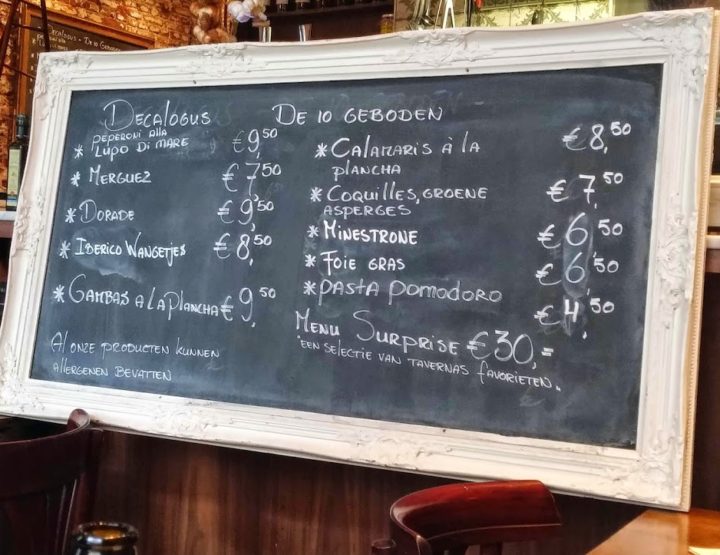 Decalogus De 10 Geboden
* Peperoni alla
Lupo Di Mare €9,50
* Merguez €7,50
* Dorade €9,50
* Iberico Wangetjes €8,50
* Gambas a la Plancha €9,50
Al onze producten kunnen
allergenen bevatten
* Calamaris à la
plancha €8,50
* Coquilles, groene
asperges €7,50
* Minestrone €6,50
* Foie gras €6,50
* pasta pomodoro €4,50
Menu Surprise €30,=
een selectie van tavernas favorieten.